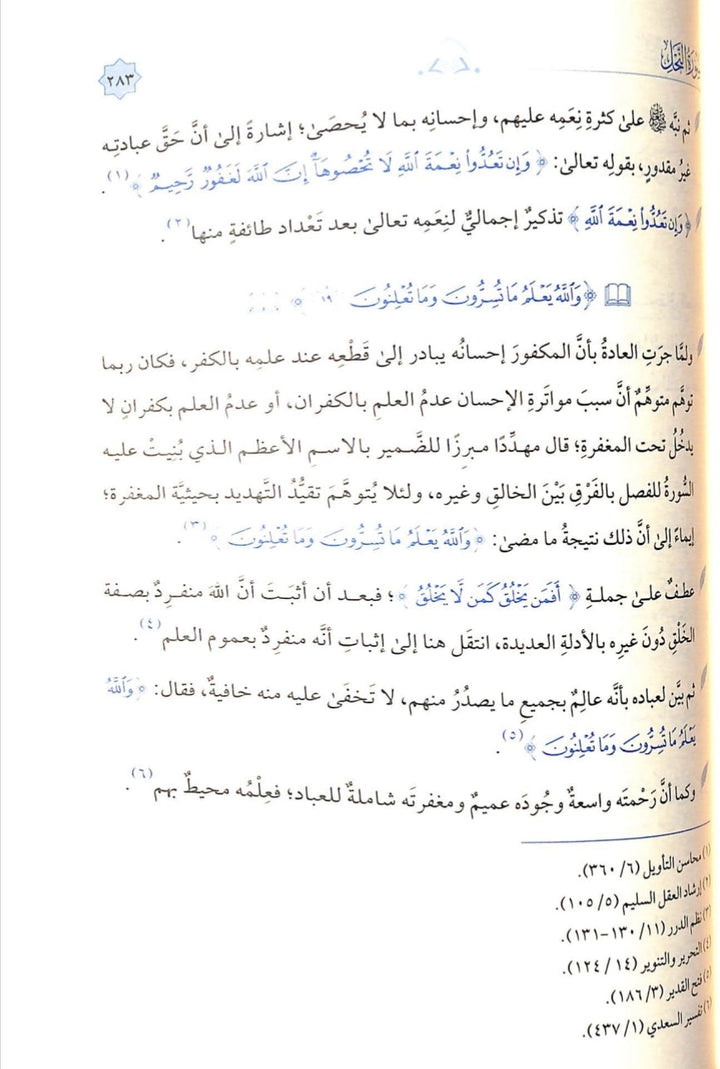 سورة النحل
٢٨٣
ثم نبَّه ﷻ علىٰ كثرةِ نِعَمِه عليهم، وإحسانِه بما لا يُحصَىٰ؛ إشارةً إلىٰ أنَّ حَقَّ عبادتِه
غيرُ مقدورٍ، بقولِه تعالىٰ: ﴿ وَإِن تَعُدُّوا۟ نِعْمَةَ ٱللَّهِ لَا تُحْصُوهَآ إِنَّ ٱللَّهَ لَغَفُورٌ رَّحِيمٌ ﴾(١).
﴿وَإِن تَعُدُّوا۟ نِعْمَةَ ٱللَّهِ ﴾ تذكيرٌ إجماليٌّ لنِعَمِه تعالىٰ بعد تَعْداد طائفةٍ منها(٢).
﴿وَٱللَّهُ يَعْلَمُ مَا تُسِرُّونَ وَمَا تُعْلِنُونَ ١٩ ﴾
ولمَّا جرَتِ العادةُ بأنَّ المكفورَ إحسانُه يبادر إلىٰ قَطْعِه عند علمِه بالكفر، فكان ربما
توهَّم متوهِّمٌ أنَّ سببَ مواتَرةِ الإحسان عدمُ العلمِ بالكفران، أو عدمُ العلم بكفرانٍ لا
يدخُلُ تحت المغفرةِ؛ قال مهدِّدًا مبرِزًا للضَّمير بالاسمِ الأعظم الذي بُنِيتْ عليه
السُّورةُ للفصل بالفَرْقِ بَيْنَ الخالقِ وغيره، ولئلا يُتوهَّمَ تقيُّدُ التَّهديد بحيثيَّة المغفرة؛
إيماءً إلىٰ أنَّ ذلك نتيجةُ ما مضىٰ: ﴿وَٱللَّهُ يَعْلَمُ مَا تُسِرُّونَ وَمَا تُعْلِنُونَ ﴾(٣).
عطفٌ علىٰ جملةِ ﴿ أَفَمَن يَخْلُقُ كَمَن لَّا يَخْلُقُ ﴾؛ فبعد أن أثبَتَ أنَّ اللهَ منفرِدٌ بصفة
الخَلْقِ دُونَ غيرِه بالأدلةِ العديدة، انتقَل هنا إلىٰ إثباتِ أنَّه منفرِدٌ بعمومِ العلم(٤).
ثم بيَّن لعباده بأنَّه عالِمٌ بجميعِ ما يصدُرُ منهم، لا تَخفَىٰ عليه منه خافيةٌ، فقال: ﴿وَٱللَّهُ
يَعْلَمُ مَا تُسِرُّونَ وَمَا تُعْلِنُونَ ﴾(٥).
وكما أنَّ رَحْمتَه واسعةٌ وجُودَه عميمٌ ومغفرتَه شاملةٌ للعباد؛ فعِلْمُه محيطٌ بهم(٦).
(١) محاسن التأويل (٦/ ٣٦٠).
(٢) إرشاد العقل السليم (٥/ ١٠٥).
(٣) نظم الدرر (١١/ ١٣٠-١٣١).
(٤) التحرير والتنوير (١٤/ ١٢٤).
(٥) فتح القدير (٣/ ١٨٦).
(٦) تفسير السعدي (١/ ٤٣٧).